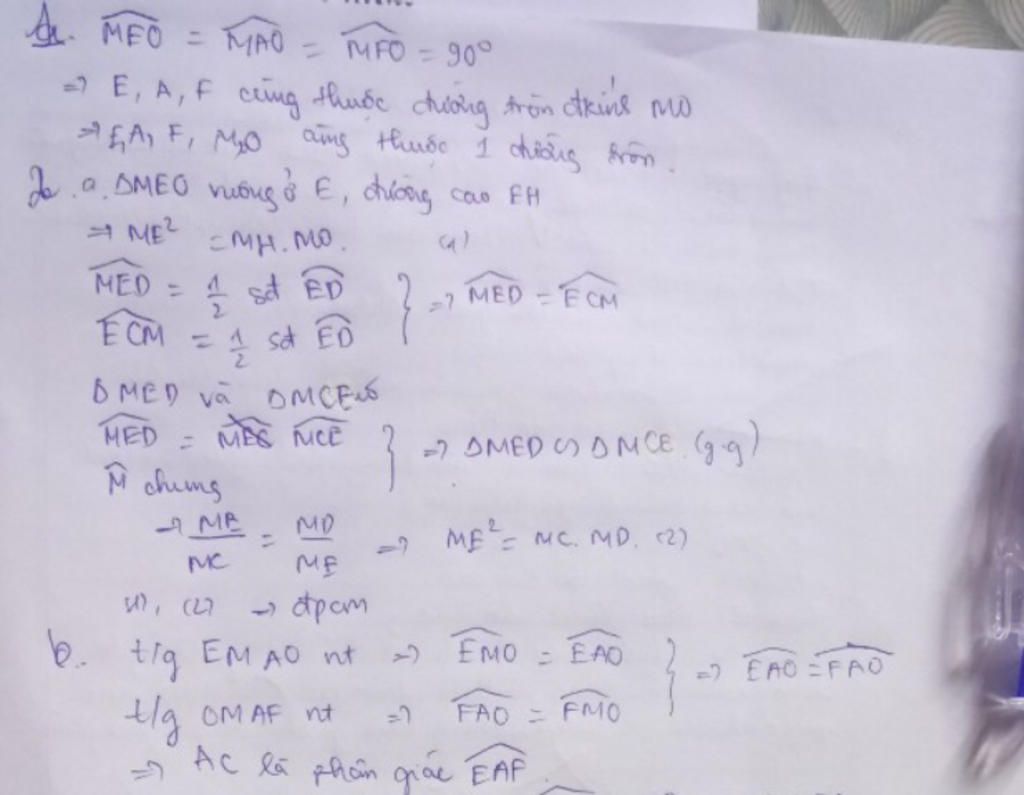 1. MEO = MAO = MFO = 90°
=> E, A, F cùng thuộc đường tròn đkính MO
=> E, A, F, M, O cùng thuộc 1 đường tròn.
2. a. ΔMEO vuông ở E, đường cao EH
=> ME² = MH. MO. (1)
MED = 1/2 sđ ED
ECM = 1/2 sđ ED } => MED = ECM
ΔMED và ΔMCE có
MED = MCE
M chung } => ΔMED ∽ ΔMCE. (g.g)
→ ME/MC = MD/ME => ME² = MC. MD. (2)
(1), (2) → đpcm
b. t/g EMAO nt => EMO = EAO
t/g OMAF nt => FAO = FMO } => EAO = FAO
=> AC là phân giác EAF.